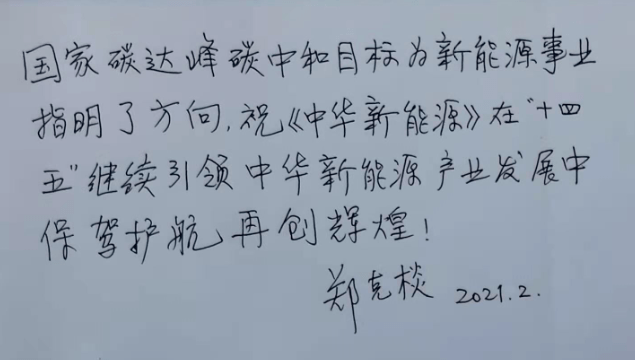 国家碳达峰碳中和目标为新能源事业
指明了方向,祝《中华新能源》在“十四
五”继续引领中华新能源产业发展中
保驾护航再创辉煌!
郑克棪 2021.2.